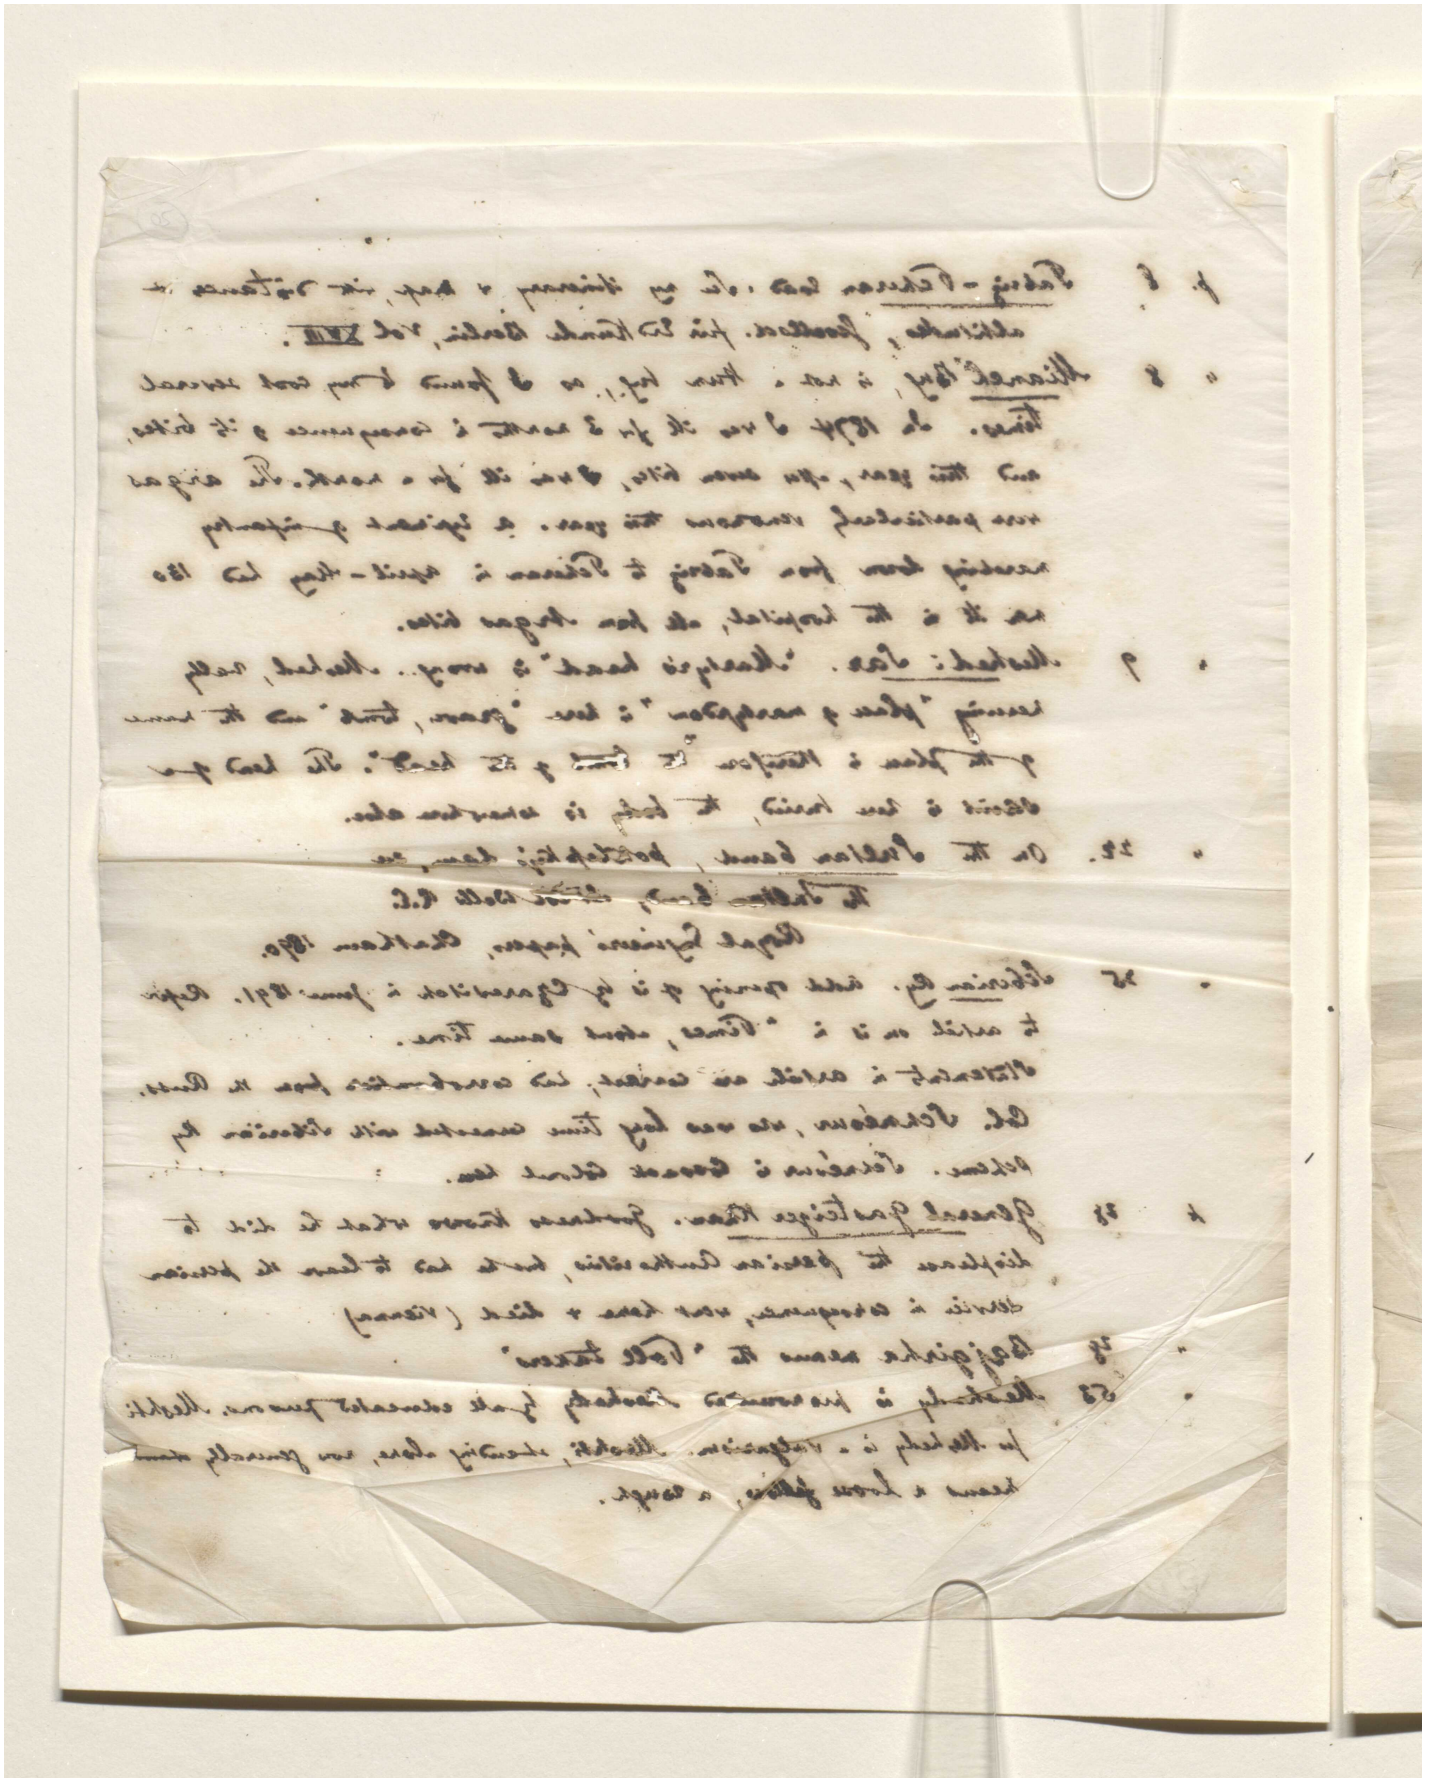 p. 8. Tabriz - Teheran road. See my itinerary & map, with distances &
altitudes, Gesellsch. für Erdkunde Berlin, Vol XVIII.
" 8 Mianeh Bug, is not a Hum bug, as I found to my cost several
times. In 1874 I was ill for 3 months in consequence of its bites,
and this year, after seven bites, I was ill for a month. The argas
were particularly venomous this year. A regiment of infantry
marching down from Tabriz to Teheran in April - May had 130
men ill in the hospital, all from Argas bites.
" 9 Meshed i Sar. "Martyr's head" is wrong. Meshed, really
meaning "place of martyrdom" is here "grave, tomb" and the name
of the place is therefore "the tomb of the head". The head of a
Saint is here buried, the body is somewhere else.
" 22. On the Sultan band, see
The Sultan Band, Wells R.E.
Royal Engineers' papers, Chatham 1890.
" 25 Siberian Ry. Add opening of it by Czarewitch in June 1891. Refer
to article on it in "Times, about same time.
Statements in article are correct, had corroboration from the Russ.
Col. who was long time connected with Siberian Ry
scheme. is Cossack Colonel here.
p 28 General Gasteiger Khan. Goodness knows what he did to
displease the persian Authorities, but he had to leave the persian
service in consequence, went home & died (Vienna)
" 29 Bajgirha means the "Toll takers"
" 53 Meshedy is pronounced Meshedy by all educated persons. Meshti
for Meshedy is a vulgarism. Meshti, standing alone, now generally
means a loose fellow, a rough.